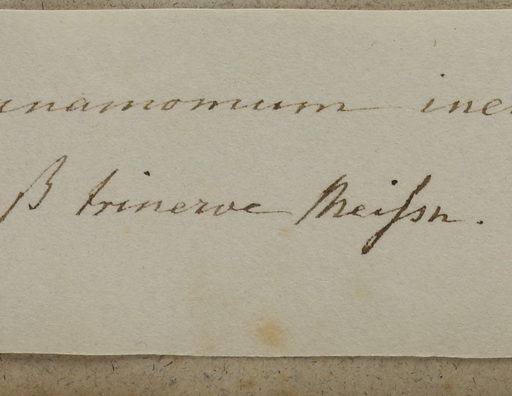 innamomum iner
β trinerve Meiſsn.